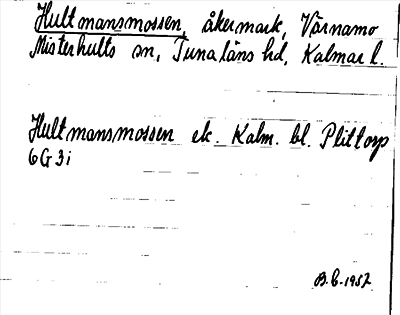 Hultmansmossen, åkermark, Värnamo
Misterhults sn, Tunaläns hd, Kalmar l.
Hultmansmossen ek. Kalm. bl. Plittorp
6G3i
B.G.1957